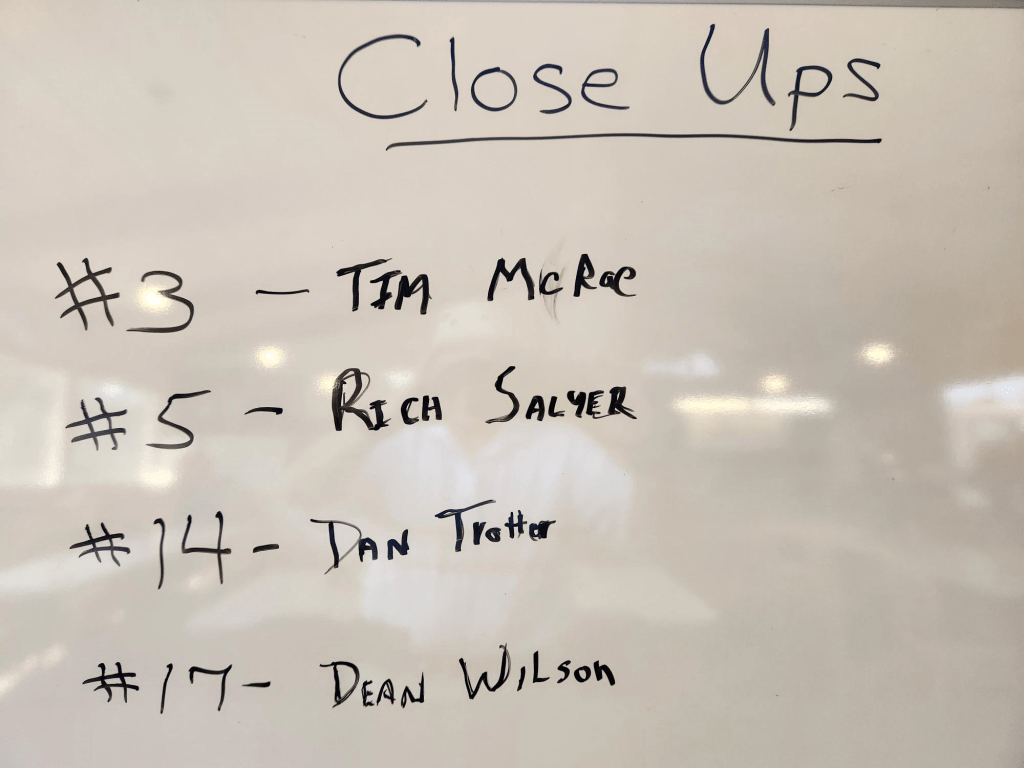 Close Ups
#3 - TIM McRae
#5 - RICH SALYER
#14 - DAN Trotter
#17 - DEAN WILSon